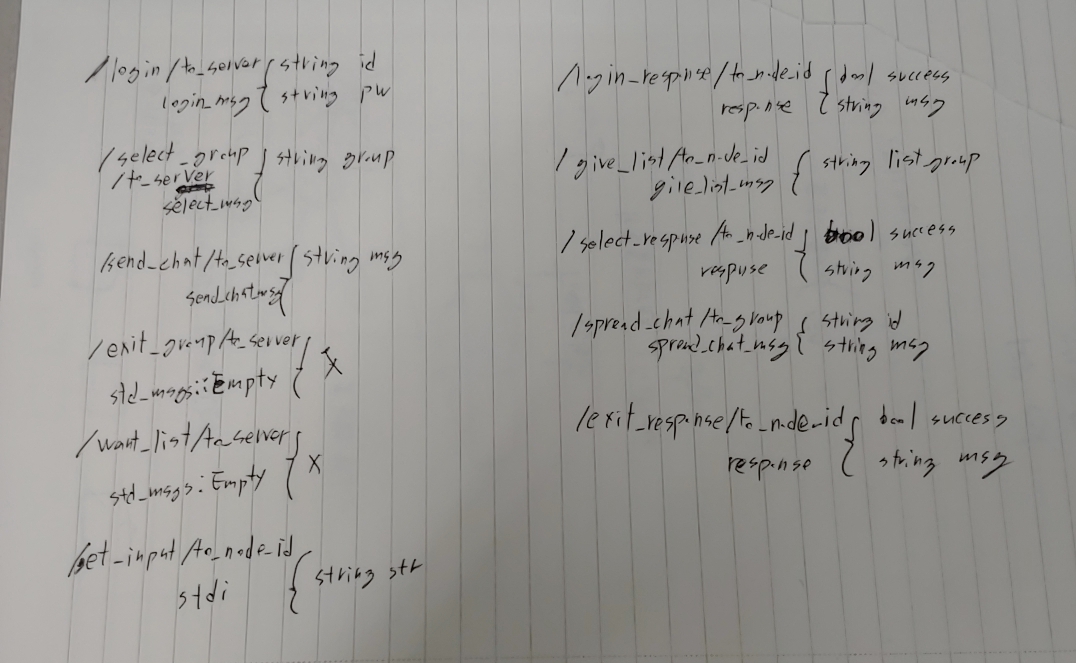 /login/to_server { string id
login_msg { string pw
/select_group { string group
/to_server
select_msg
/send_chat/to_server { string msg
send_chat_msg
/exit_group/to_server { X
std_msgs::Empty
/want_list/to_server { X
std_msgs::Empty
/get_input/to_node_id { string str
stdi
/login_response/to_node_id { bool success
response { string msg
/give_list/to_node_id { string list_group
give_list_msg
/select_response/to_node_id { bool success
response { string msg
/spread_chat/to_group { string id
spread_chat_msg { string msg
/exit_response/to_node_id { bool success
response { string msg